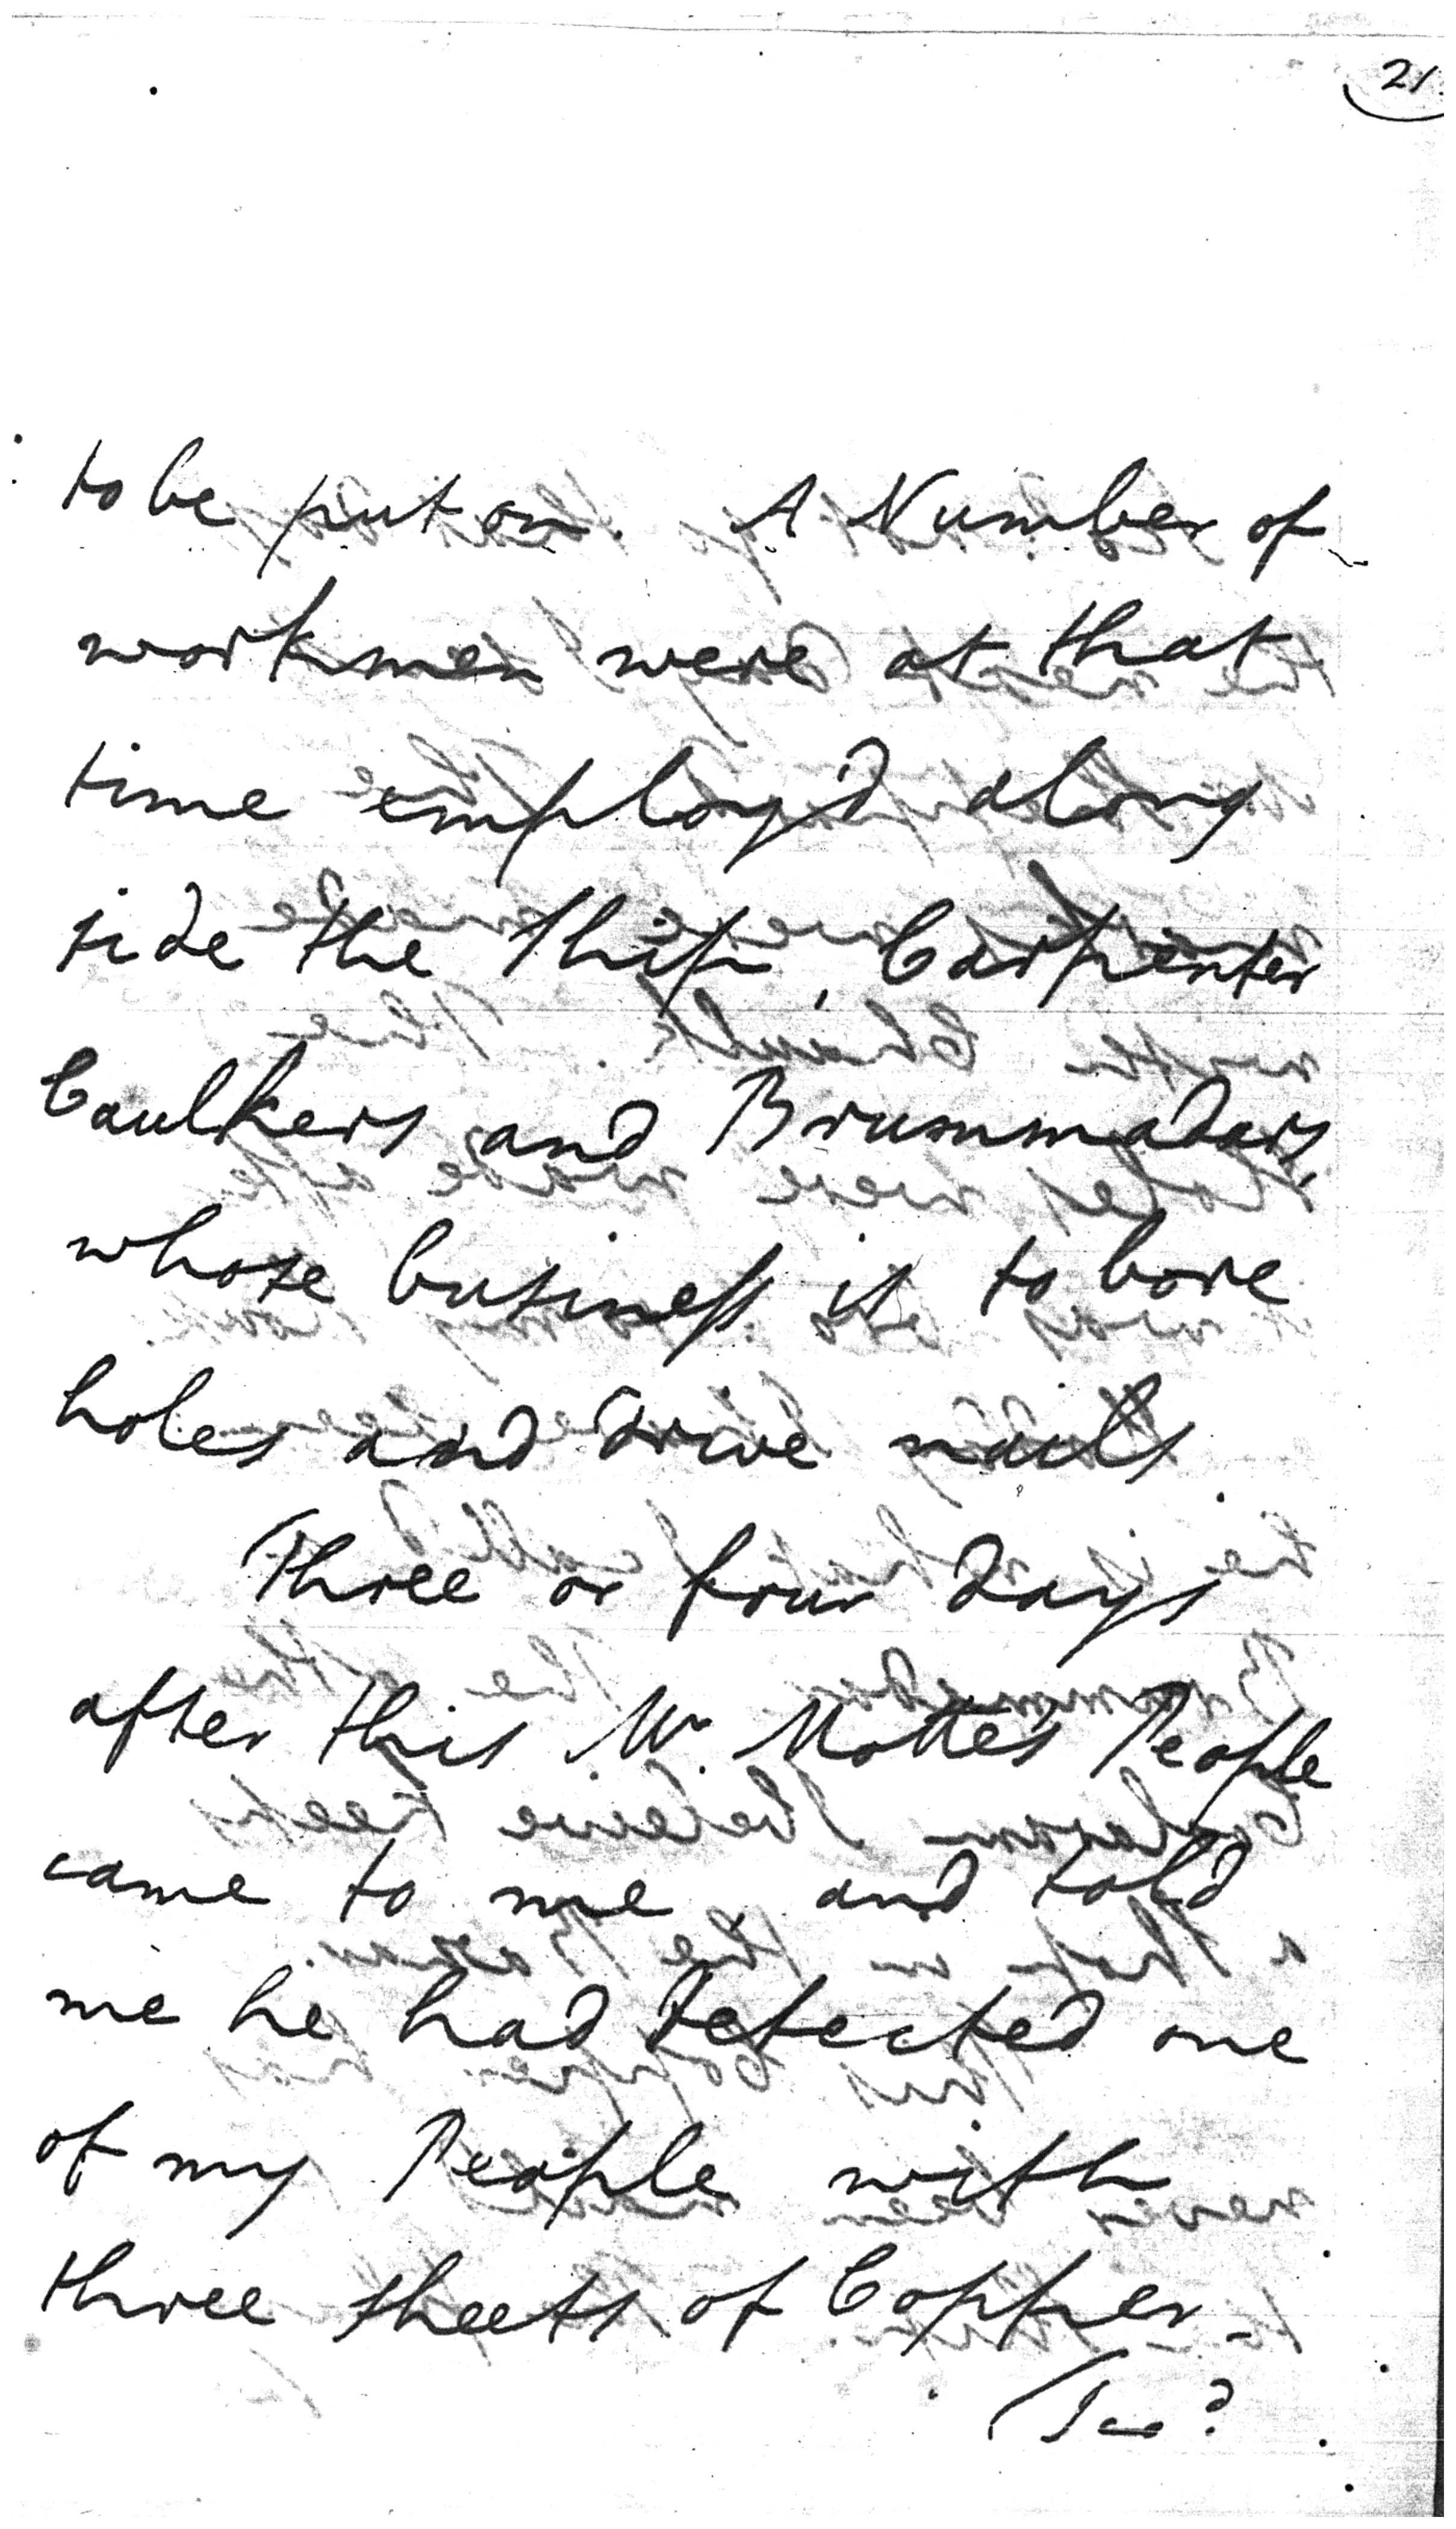 21.
to be put on. A Number of
workmen were at that
time employ'd along
side the Ship, Carpenter
Caulkers and Brummadars,
whose business is to bore
holes and drive nails.
Three or four days
after this Mr. Mottes People
came to me, and told
me he had detected one
of my People with
three sheets of Copper_